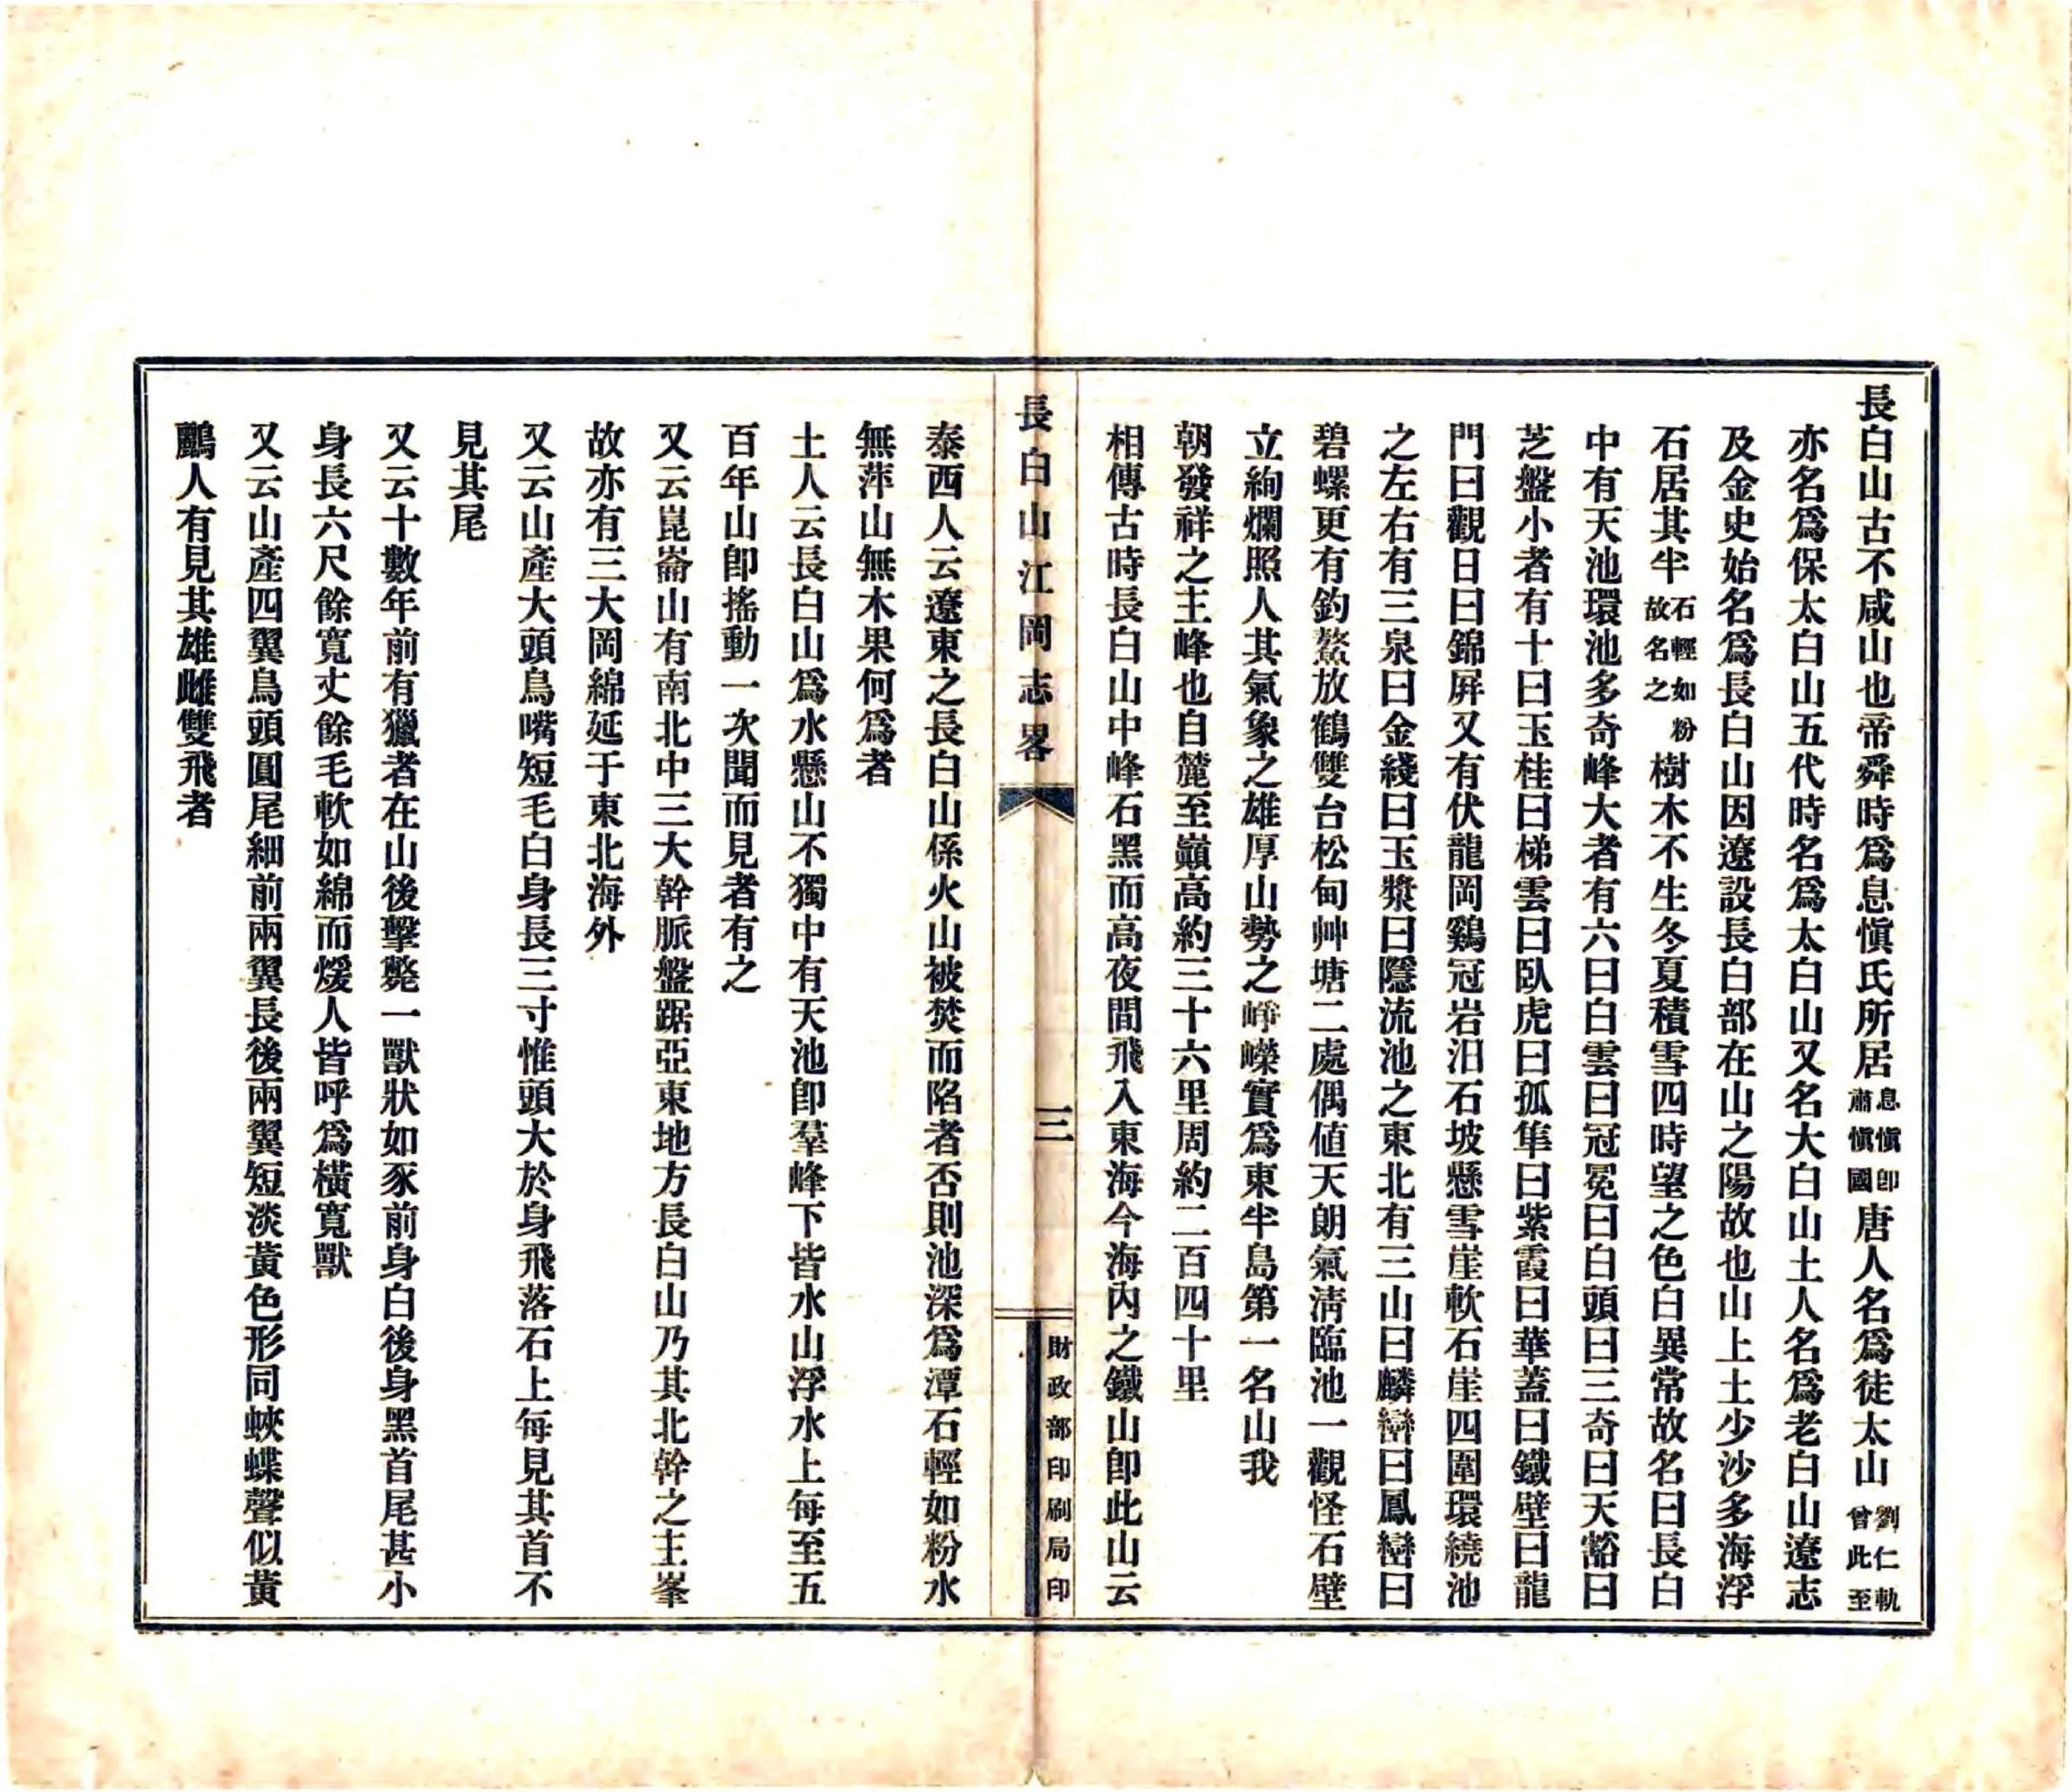 長白山古不咸山也帝舜時爲息愼氏所居息愼卽肅愼國唐人名爲徒太山劉仁軌曾此至
亦名爲保太白山五代時名爲太白山又名大白山土人名爲老白山遼志
及金史始名爲長白山因遼設長白部在山之陽故也山上土少沙多海浮
石居其半石輕如粉故名之樹木不生冬夏積雪四時望之色白異常故名曰長白
中有天池環池多奇峰大者有六曰白雲曰冠冕曰白頭曰三奇曰天豁曰
芝盤小者有十曰玉柱曰梯雲曰臥虎曰孤隼曰紫霞曰華蓋曰鐵壁曰龍
門曰觀日曰錦屛又有伏龍岡鷄冠岩汨石坡懸雪崖軟石崖四圍環繞池
之左右有三泉曰金綫曰玉漿曰隱流池之東北有三山曰麟巒曰鳳巒曰
碧螺更有釣鰲放鶴雙台松甸艸塘二處偶値天朗氣淸臨池一觀怪石壁
立絢爛照人其氣象之雄厚山勢之崢嶸實爲東半島第一名山我
朝發祥之主峰也自麓至巓高約三十六里周約二百四十里
相傳古時長白山中峰石黑而高夜間飛入東海今海內之鐵山卽此山云
長白山江岡志畧
三
財政部印刷局印
泰西人云遼東之長白山係火山被焚而陷者否則池深爲潭石輕如粉水
無萍山無木果何爲者
土人云長白山爲水懸山不獨中有天池卽羣峰下皆水山浮水上每至五
百年山卽搖動一次聞而見者有之
又云崑崙山有南北中三大幹脈盤踞亞東地方長白山乃其北幹之主峯
故亦有三大岡綿延于東北海外
又云山產大頭鳥嘴短毛白身長三寸惟頭大於身飛落石上每見其首不
見其尾
又云十數年前有獵者在山後擊斃一獸狀如豕前身白後身黑首尾甚小
身長六尺餘寬丈餘毛軟如綿而煖人皆呼爲橫寬獸
又云山產四翼鳥頭圓尾細前兩翼長後兩翼短淡黃色形同蛺蝶聲似黃
鸝人有見其雄雌雙飛者